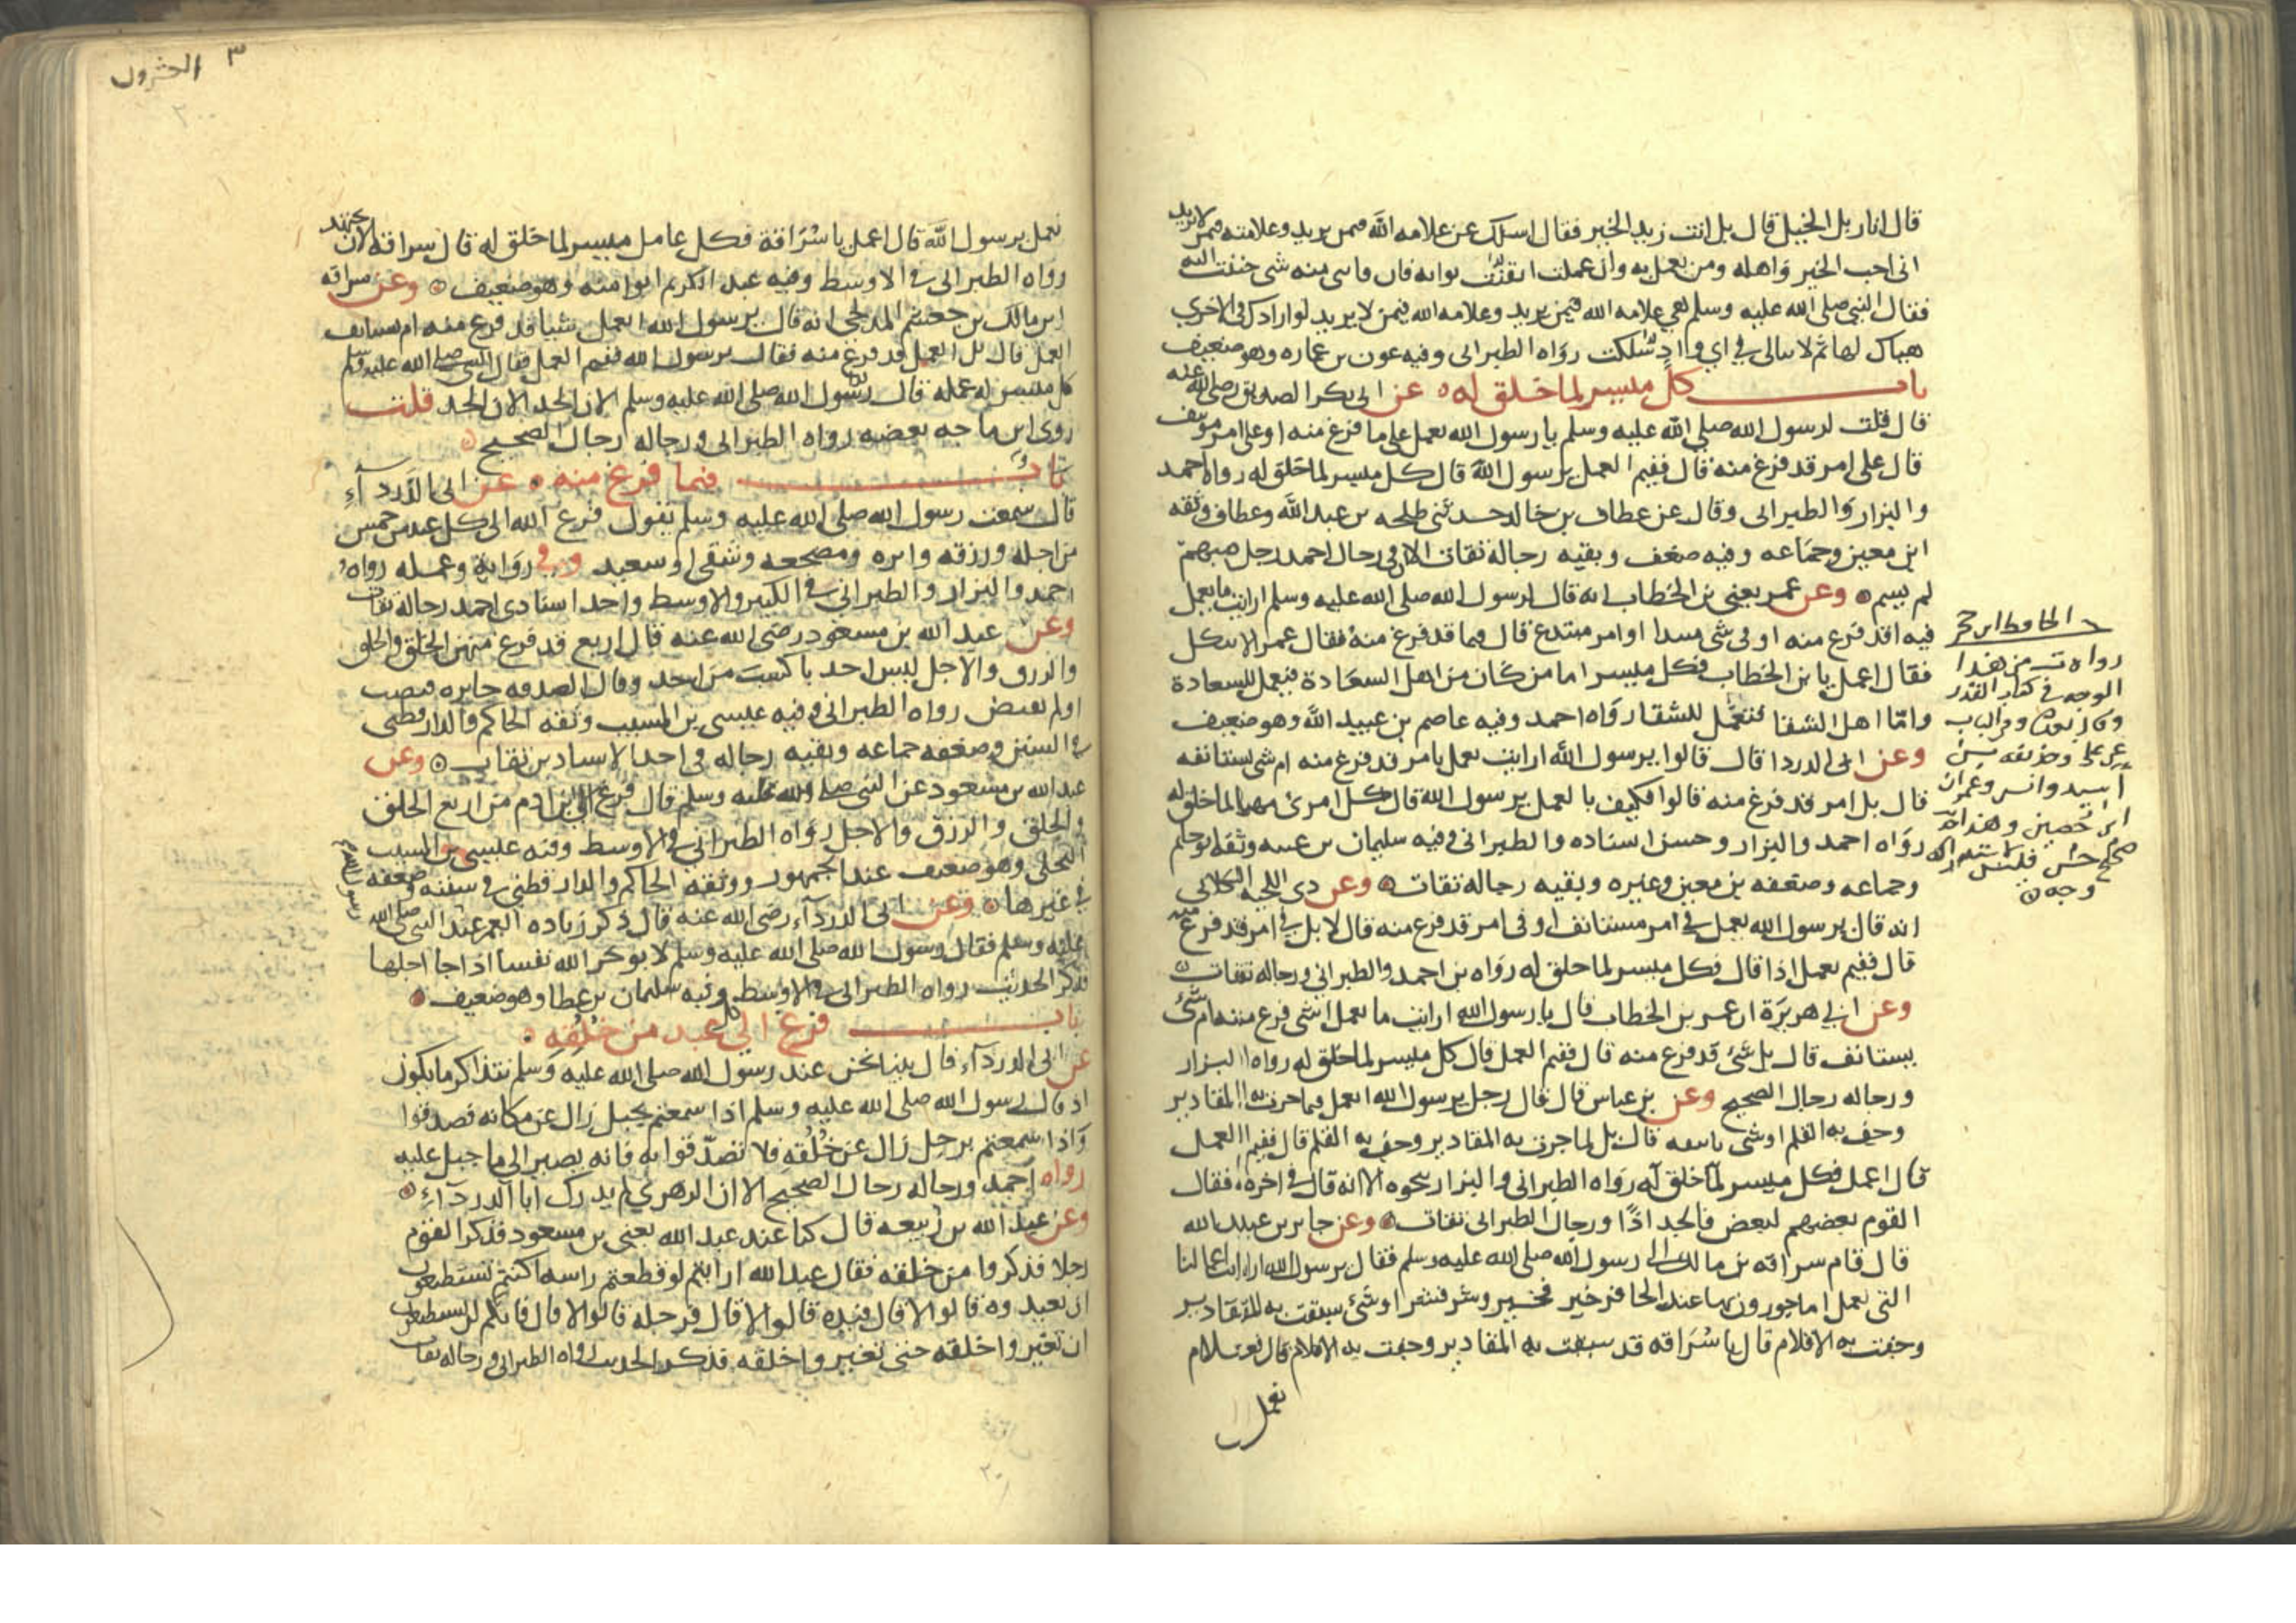 قال انا زيد الخيل قال بل انت زيد الخير فقال اسلك عن علامه الله فيمن يريد وعلامته فيمن لا يريد
انى احب الخير واهله ومن يعمل به وان عملت به ايقنت ثوابه فان فاتنى منه شى حننت اليه
فقال النبى صلى الله عليه وسلم هى علامه الله فيمن يريد وعلامه الله فيمن لا يريد لو ارادك فى الاخرى
هياك لها ثم لا يبالى فى اى واد سلكت رواه الطبرانى وفيه عون بن عماره وهو ضعيف
باب كل ميسر لما خلق له عن ابى بكر الصديق رضى الله عنه
قال قلت لرسول الله صلى الله عليه وسلم يا رسول الله نعمل على ما فرغ منه او على امر موتنف
قال على امر قد فرغ منه قال ففيم العمل يرسول الله قال كل ميسر لما خلق له رواه احمد
والبزار والطبرانى وقال عن عطاف بن خالد حدثنى طلحه بن عبد الله وعطاف وثقه
ابن معين وجماعه وفيه ضعف وبقيه رجاله ثقات الا ان فى رجال احمد رجل مبهم
لم يسم وعن عمر يعنى بن الخطاب انه قال لرسول الله صلى الله عليه وسلم ارايت ما نعمل
فيه اقد فرغ منه او فى شى مبتدا او امر مبتدع قال فيما قد فرغ منه فقال عمر الا نتكل
فقال اعمل يا بن الخطاب فكل ميسر اما من كان من اهل السعادة فيعمل للسعادة
واما اهل الشقا فيعمل للشقا رواه احمد وفيه عاصم بن عبيد الله وهو ضعيف
وعن ابى الدردا قال قالوا يرسول الله ارايت نعمل بامر قد فرغ منه ام شى نستانفه
قال بل امر قد فرغ منه قالوا فكيف بالعمل يرسول الله قال كل امرئ مهيا لما خلق له
رواه احمد والبزار وحسن اسناده والطبرانى وفيه سليمان بن عتبه وثقه ابو حاتم
وجماعه وضعفه بن معين وغيره وبقيه رجاله ثقات وعن ذى اللحيه الكلابى
انه قال يرسول الله نعمل فى امر مستانف او فى امر قد فرغ منه قال لا بل فى امر قد فرغ منه
قال ففيم نعمل اذا قال فكل ميسر لما خلق له رواه بن احمد والطبرانى ورجاله ثقات
وعن ابى هريرة ان عمر بن الخطاب قال يا رسول الله ارايت ما نعمل اشى فرغ منه ام شئ
يستانف قال بل شئ قد فرغ منه قال ففيم العمل قال كل ميسر لما خلق له رواه البزار
ورجاله رجال الصحيح وعن بن عباس قال قال رجل يرسول الله انعمل فيما جرت به المقادير
وجف به القلم او شى ناتنفه قال بل لما جرت به المقادير وجف به القلم قال ففيم العمل
قال اعمل فكل ميسر لما خلق له رواه الطبرانى والبزار بنحوه الا انه قال فى اخره فقال
القوم بعضهم لبعض فالجد اذا ورجال الطبرانى ثقات وعن جابر بن عبد الله
قال قام سراقه بن مالك الى رسول الله صلى الله عليه وسلم فقال يرسول الله ارايت اعمالنا
التى نعمل اماجورون بها عند الحافر خير فخير وشر فشر او شئ سبقت به المقادير
وجفت به الاقلام قال يا سراقه قد سبقت به المقادير وجفت به الاقلام قال
نعمل
الحافظ ابن حجر
رواه ت من هذا
الوجه فى كتاب القدر
وفى الباب
عن على وحذيفه بن
اسيد وانس وعمران
ابن حصين وهذا حد
صحيح حسن فليس لاستدراكه
وجه
٣ العشرون
٢٠٠
نعمل يرسول الله قال اعمل يا سراقة فكل عامل ميسر لما خلق له قال سراقه الان نجتهد
رواه الطبرانى فى الاوسط وفيه عبد الكريم ابو اميه وهو ضعيف وعن سراقه
ابن مالك بن جعشم المدلجى انه قال يرسول الله انعمل شيا قد فرغ منه ام نستانف
العمل قال بل العمل قد فرغ منه فقال يرسول الله ففيم العمل فقال النبى صلى الله عليه وسلم
كل ميسر له عمله قال رسول الله صلى الله عليه وسلم الان الجد الان الجد قلت
روى ابن ماجه بعضه رواه الطبرانى ورجاله رجال الصحيح
باب فيما فرغ منه عن ابى الدرداء
قال سمعت رسول الله صلى الله عليه وسلم يقول فرغ الله الى كل عبد من خمس
من اجله ورزقه واثره ومضجعه وشقى او سعيد وفى رواية وعمله رواه
احمد والبزار والطبرانى فى الكبير والاوسط واحد اسنادى احمد رجاله ثقات
وعن عبد الله بن مسعود رضى الله عنه قال اربع قد فرغ منهن الخلق والخلق
والرزق والاجل ليس احد باكسب من احد وقال الصدقه جايزه قبضت
او لم تقبض رواه الطبرانى وفيه عيسى بن المسيب وثقه الحاكم والدارقطنى
فى السنن وضعفه جماعه وبقيه رجاله فى احد الاسنادين ثقات وعن
عبد الله بن مسعود عن النبى صلى الله عليه وسلم قال فرغ الى بن ادم من اربع الخلق
والخلق والرزق والاجل رواه الطبرانى فى الاوسط وفيه عيسى بن المسيب
البجلى وهو ضعيف عند الجمهور ووثقه الحاكم والدارقطنى فى سننه وضعفه
فى غيرها وعن ابى الدرداء رضى الله عنه قال ذكر زياده العمر عند النبى صلى الله
عليه وسلم فقال رسول الله صلى الله عليه وسلم لا يوخر الله نفسا اذا جا اجلها
فذكر الحديث رواه الطبرانى فى الاوسط وفيه سليمان بن عطا وهو ضعيف
باب فرغ الى كل عبد من خلقه
عن ابى الدرداء قال بينا نحن عند رسول الله صلى الله عليه وسلم نتذاكر ما يكون
اذ قال رسول الله صلى الله عليه وسلم اذا سمعتم بجبل زال عن مكانه فصدقوا
واذا سمعتم برجل زال عن خلقه فلا تصدقوا به فانه يصير الى ما جبل عليه
رواه احمد ورجاله رجال الصحيح الا ان الزهرى لم يدرك ابا الدرداء
وعن عبد الله بن ربيعه قال كنا عند عبد الله يعنى بن مسعود فذكر القوم
رجلا فذكروا من خلقه فقال عبد الله ارايتم لو قطعتم راسه اكنتم تستطيعون
ان تعيدوه قالوا لا قال فيده قالوا لا قال فرجله قالوا لا قال فانكم لن تستطيعوا
ان تغيروا خلقه حتى تغيروا خلقه فذكر الحديث رواه الطبرانى ورجاله ثقات
٢٠١